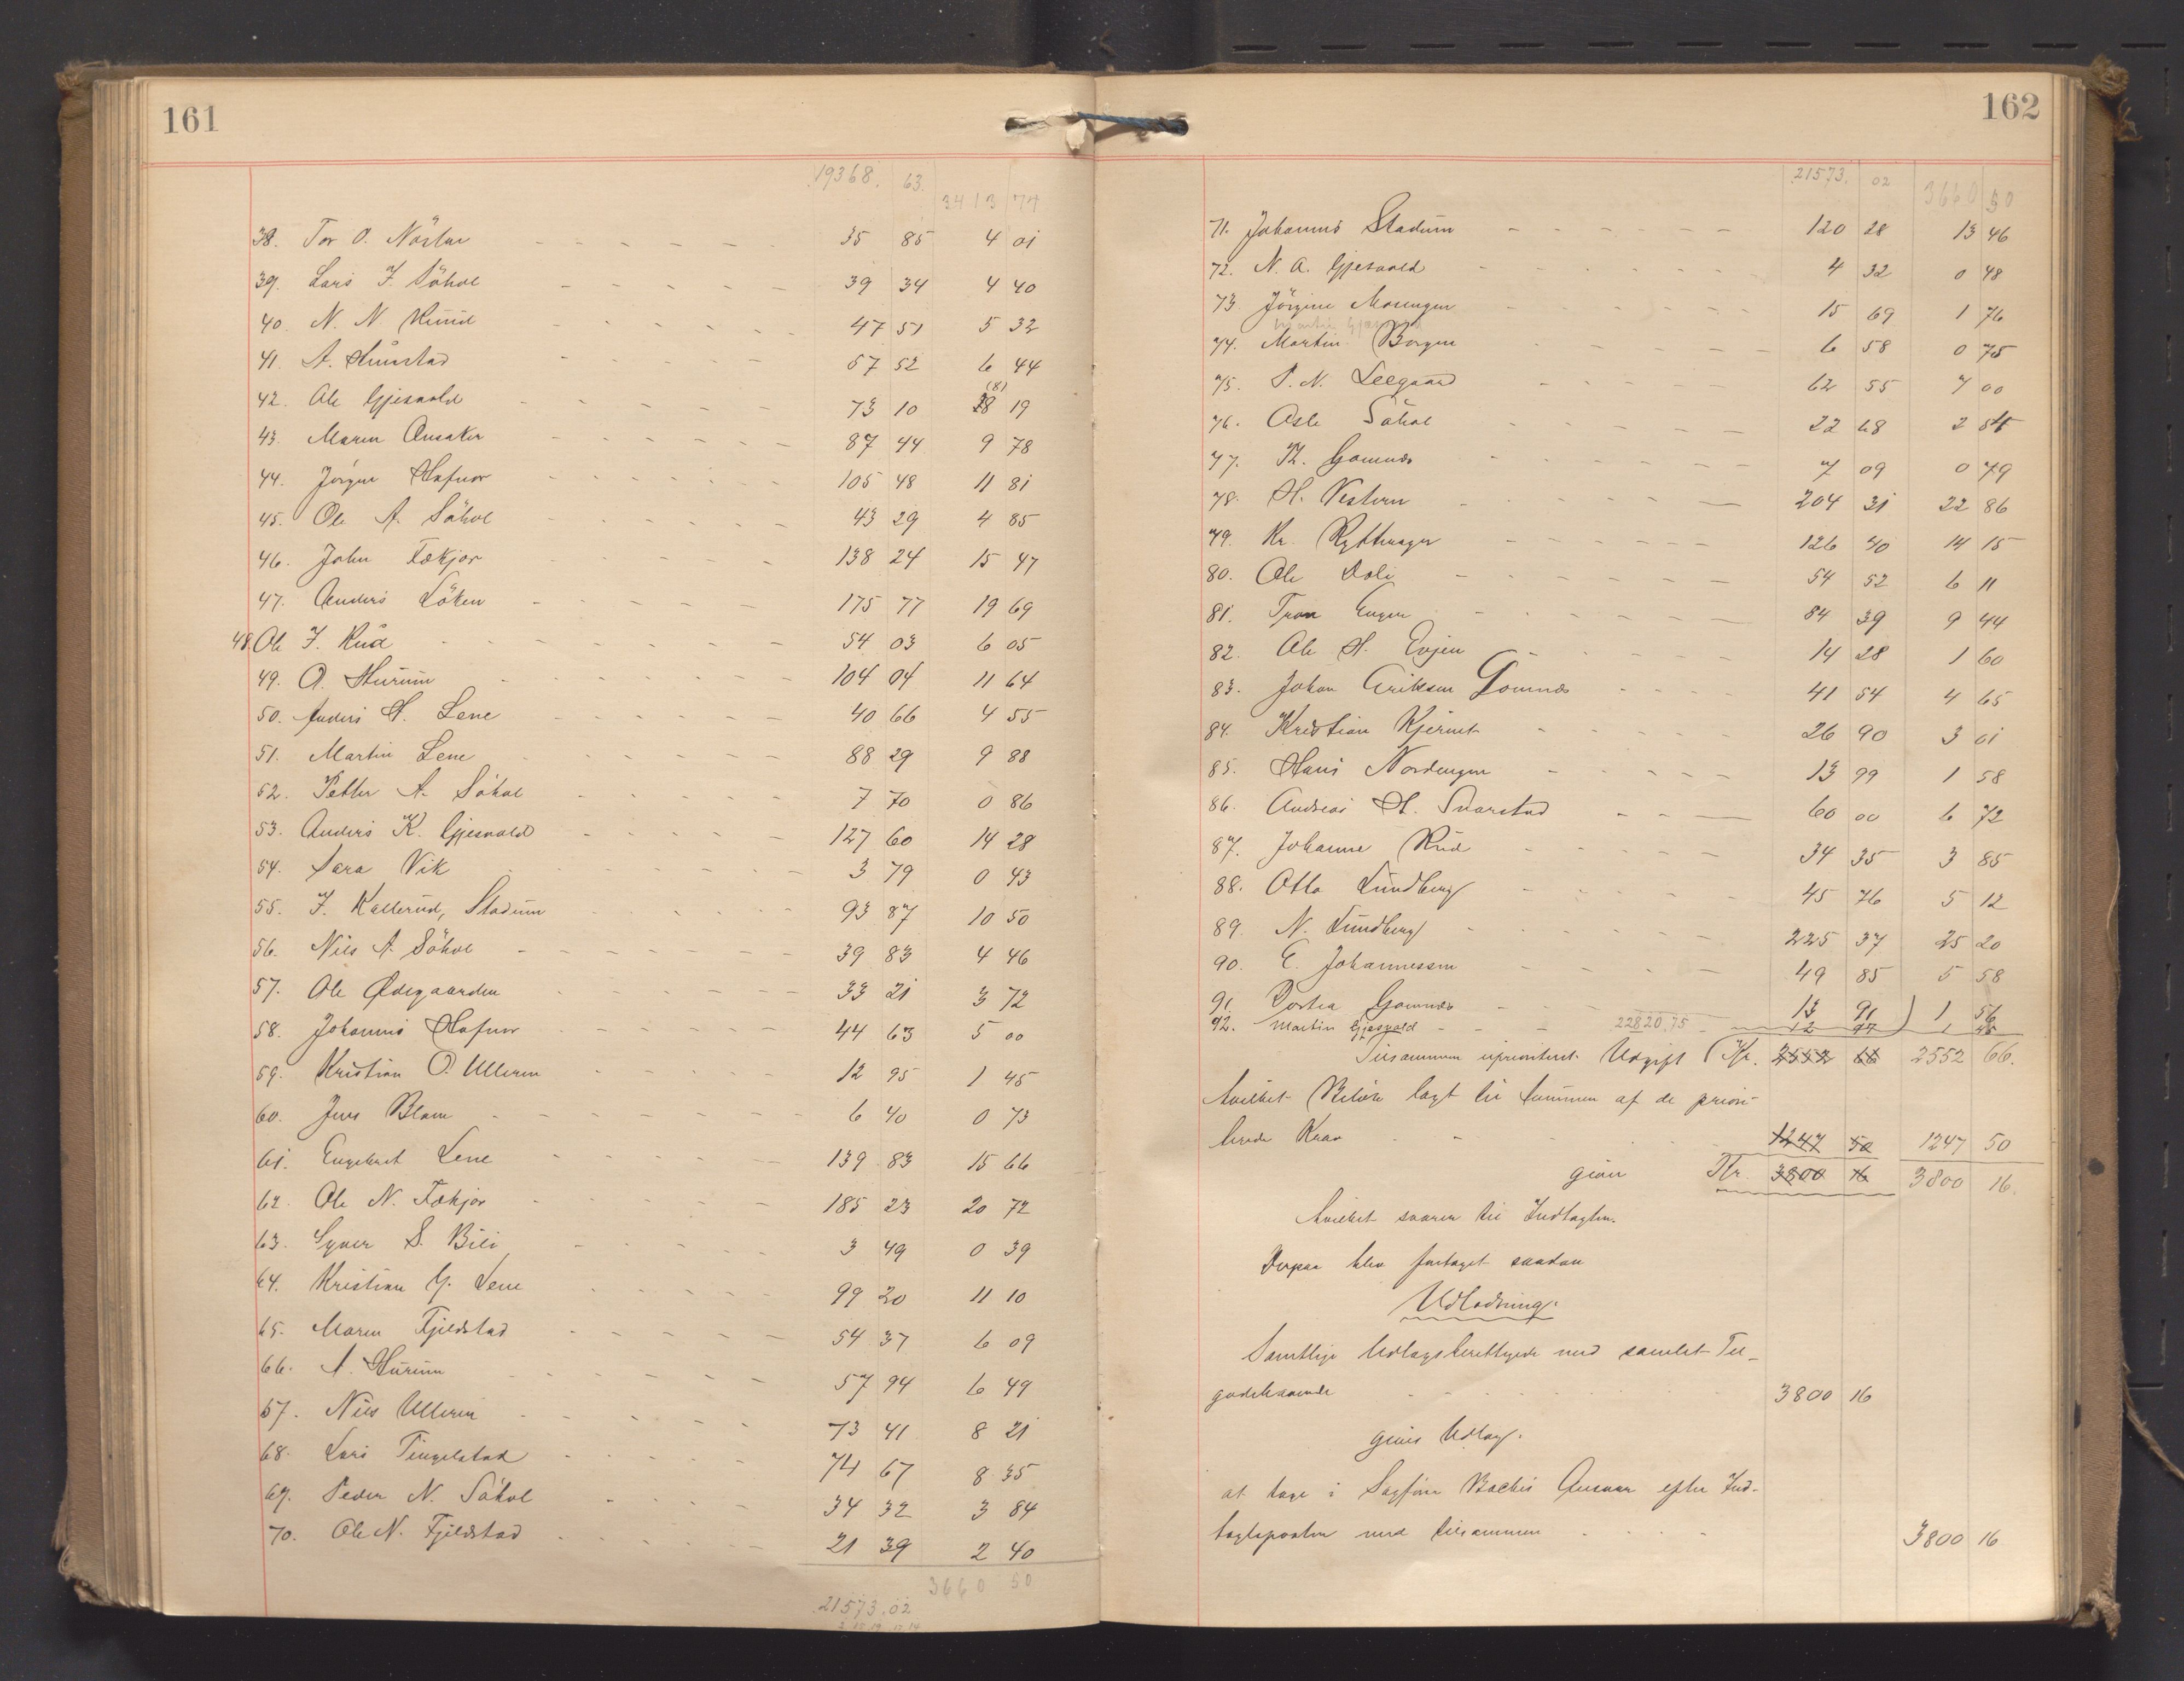 161
19368. 63.
3413 74
38. Tor O. Nörstur - - - - - - 35 85 4 01
39. Lars J. Söhol - - - - - 39 34 4 40
40. N. N. Ruud - - - - - - 47 51 5 32
41. A. Hunstad - - - - - 57 52 6 44
42. Ole Gjesvold - - - - - 73 10 (8) 8 19
43. Maren Ansaker - - - - - - 87 44 9 78
44. Jörgen Hafnor - - - - - - 105 48 11 81
45. Ole A. Söhol - - - - - - 43 29 4 85
46. John Fækjor - - - - - 138 24 15 47
47. Anders Löken - - - - - 175 77 19 69
48. Ole J. Rud - - - - - - - 54 03 6 05
49. O. Hurum - - - - - - 104 04 11 64
50. Anders H. Lene - - - - - - 40 66 4 55
51. Martin Lene - - - - - - 88 29 9 88
52. Petter A. Söhol - - - - - 7 70 0 86
53. Anders K. Gjesvold - - - - - 127 60 14 28
54. Sara Vik - - - - - - - 3 79 0 43
55. J. Kallerud, Stadum - - - - - 93 87 10 50
56. Nils A. Söhol - - - - - - 39 83 4 46
57. Ole Ødegaarden - - - - - - 33 21 3 72
58. Johannes Hafnor - - - - - - 44 63 5 00
59. Kristian O. Ulleren - - - - - 12 95 1 45
60. Jens Blom - - - - - - - 6 40 0 73
61. Engebret Lene - - - - - - 139 83 15 66
62. Ole N. Fækjor - - - - - - 185 23 20 72
63. Syver S. Bili - - - - - 3 49 0 39
64. Kristian G. Lene - - - - - 99 20 11 10
65. Maren Fjeldstad - - - - - - 54 37 6 09
66. A. Hurum - - - - - - 57 94 6 49
67. Nils Ulleren - - - - - - 73 41 8 21
68. Lars Tingelstad - - - - - 74 67 8 35
69. Peder N. Söhol - - - - 34 32 3 84
70. Ole N. Fjeldstad - - - - - 21 39 2 40
3660 50
21573.02
162
21573. 02 3660 50
71. Johannes Stadum - - - - - - 120 28 13 46
72. N. A. Gjesvold - - - - - - 4 32 0 48
73. Jörgine Moeengen - - - - - - 15 69 1 76
74. Martin Borgen - - - - - 6 58 0 75
75. P. N. Leegaard - - - - - 62 55 7 00
76. Asle Söhol - - - - - 22 68 2 54
77. Kl. Gomnæs - - - - - - - 7 09 0 79
78. H. Vestern - - - - - - 204 31 22 86
79. Kr. Rytterager - - - - - - 126 40 14 15
80. Ole Doli - - - - - - - 54 52 6 11
81. Tron Engen - - - - - - 84 39 9 44
82. Ole H. Evjen - - - - - - 14 28 1 60
83. Johan Eriksen Gomnæs - - - - 41 54 4 65
84. Kristian Kjernet - - - - - 26 90 3 01
85. Hans Nordengen - - - - - 13 99 1 58
86. Andreas H. Svarstad - - - 60 00 6 72
87. Johanne Rud - - - - - 34 35 3 85
88. Otto Lundberg - - - - - 45 76 5 12
89. N. Lundberg - - - - - - 225 37 25 20
90. E. Johannessen - - - - - 49 85 5 58
91. Gomnæs - - - 13 91 1 56
92. Martin Gjesvold - - - 22820.75 -
Tilsammen uprioritert Udgift Kr. 2552 66 2552 66.
hvilket Belöb lagt til Summen af de priori-
terede Krav - - - - - 1247 50 1247 50
giver Kr. 3800 16 3800 16.
hvilket svarer til Indtægten.
Derpaa blev foretaget saadan
Udlodning.
Samtlige Udlagsberettigede med samlet Til-
godehavende - - - - - 3800 16
gives Udlæg.
at tage i Sagförer Baches Ansvar efter Ind-
tægtsposten med tilsammen - - - - 3800 16